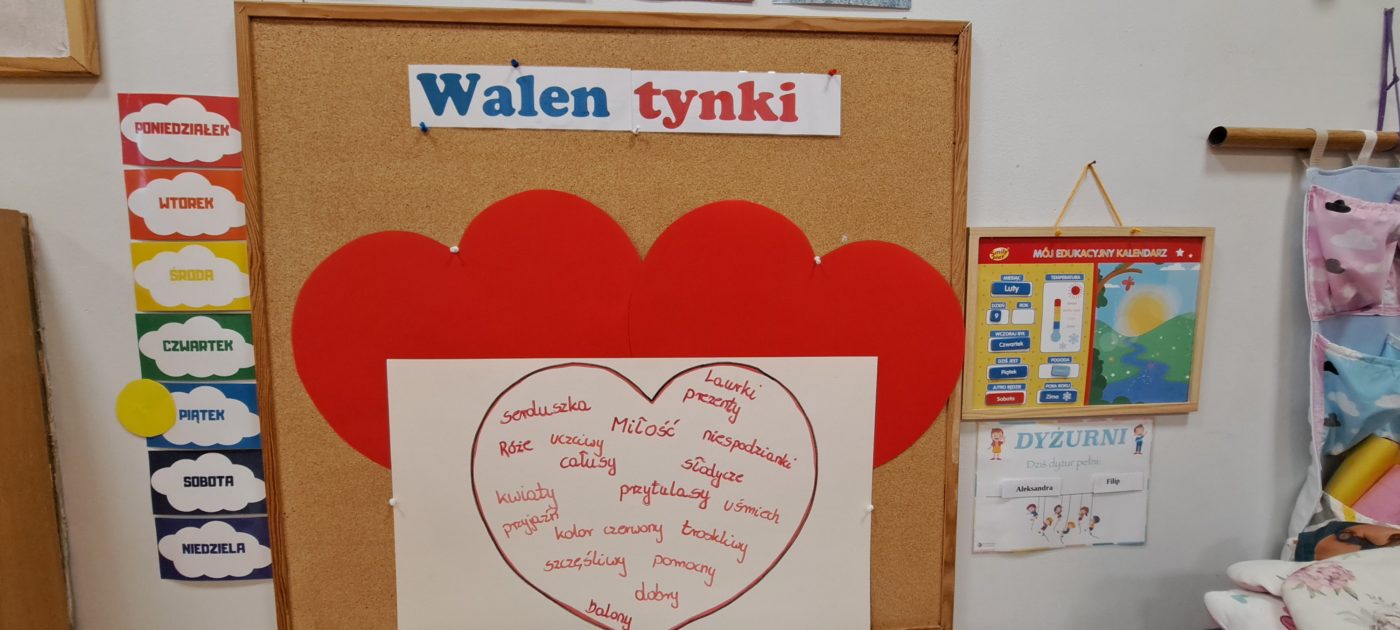 Walen tynki
PONIEDZIAŁEK
WTOREK
ŚRODA
CZWARTEK
PIĄTEK
SOBOTA
NIEDZIELA
Laurki
prezenty
serduszka
Miłość
niespodzianki
Róże
uczciwy
całusy
słodycze
kwiaty
przytulasy
uśmiech
przyjaźń
kolor czerwony
troskliwy
szczęśliwy
pomocny
dobry
Balony
MÓJ EDUKACYJNY KALENDARZ
MIESIĄC
TEMPERATURA
Luty
DZIEŃ
ROK
9
WCZORAJ BYŁ
Czwartek
DZIŚ JEST
POGODA
Piątek
JUTRO BĘDZIE
PORA ROKU
Sobota
Zima
DYŻURNI
Dziś dyżur pełni:
Aleksandra
Filip